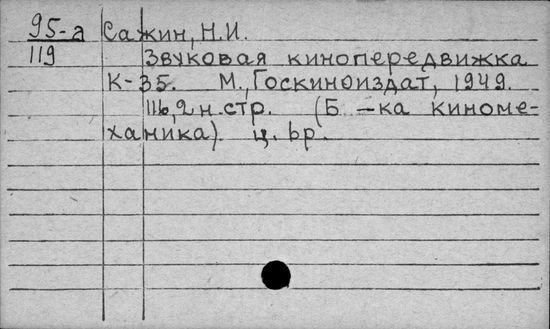 95-а Сажин, Н.И.
119 Звуковая кинопередвижка
К-35. М., Госкиноиздат, 1949.
116, 2 н. стр. (Б-ка киноме-
ханика). ц. 6р.